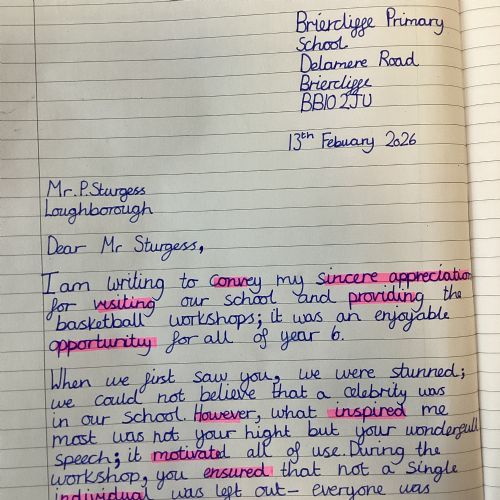 Briercliffe Primary
School
Delamere Road
Briercliffe
BB10 2JU
13th Febuary 2026
Mr.P.Sturgess
Loughborough
Dear Mr Sturgess,
I am writing to convey my sincere appreciation
for visiting our school and providing the
basketball workshops; it was an enjoyable
opportunity for all of year 6.
When we first saw you, we were stunned;
we could not believe that a celebrity was
in our school. However, what inspired me
most was not your hight but your wonderfull
speech; it motivated all of use. During the
workshop, you ensured that not a single
individual was left out- everyone was